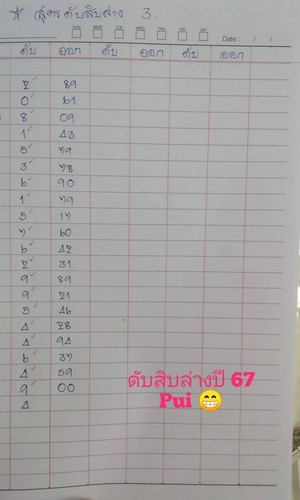 * สูตรดับสิบล่าง 3.
Date : / /
ดับ ออก ดับ ออก ดับ ออก
2 89
0 61
8 09
1 43
5 79
3 78
6 90
1 79
5 17
7 60
6 42
2 31
9 89
9 21
5 46
4 28
4 94
6 37
4 59
9 00
4
ดับสิบล่างปี 67
Pui 😁